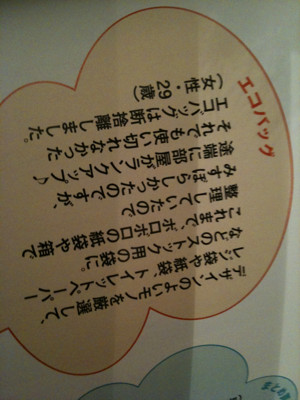 エコバッグ
デザインのよいモノを厳選して、
レジ袋や紙袋、トイレットペーパー
などのストック用の袋に。
これまで、ボロボロの紙袋や箱で
整理していたので
みすぼらしかったのですが、
途端に部屋がランクアップ♪
それでも使い切れなかった
エコバッグは断捨離しました。
(女性・29歳)